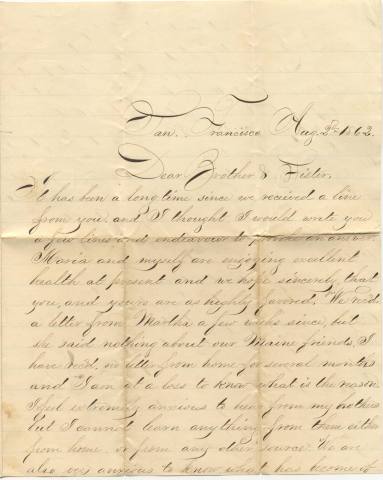 San. Francisco Aug. 2nd 1863.
Dear Brother & Sister.
It has been a long time since we received a line
from you, and I thought I would write you
a few lines and endeavour to provoke an answer.
Maria and myself are enjoying excellent
health at present and we hope sincerely that
you, and yours are as highly favored. We recd
a letter from Martha a few weeks since, but
she said nothing about our Maine friends. I
have recd. no letter from home for several months
and I am at a loss to know what is the reason
I feel extremely anxious to hear from my brothers
but I cannot learn anything from them either
from home, or from any other source. We are
also very anxious to know what has become of